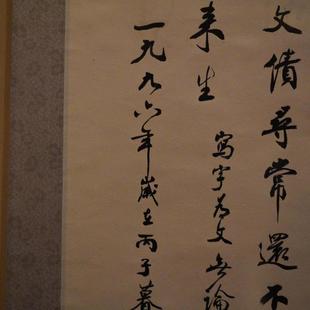 文債尋常還不
来生 寫字为文無論
一九九六年歲在丙子暮